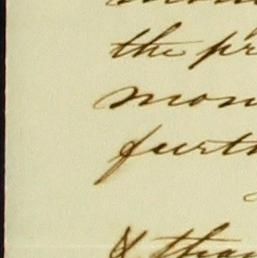 the pr
mon
furth
& than